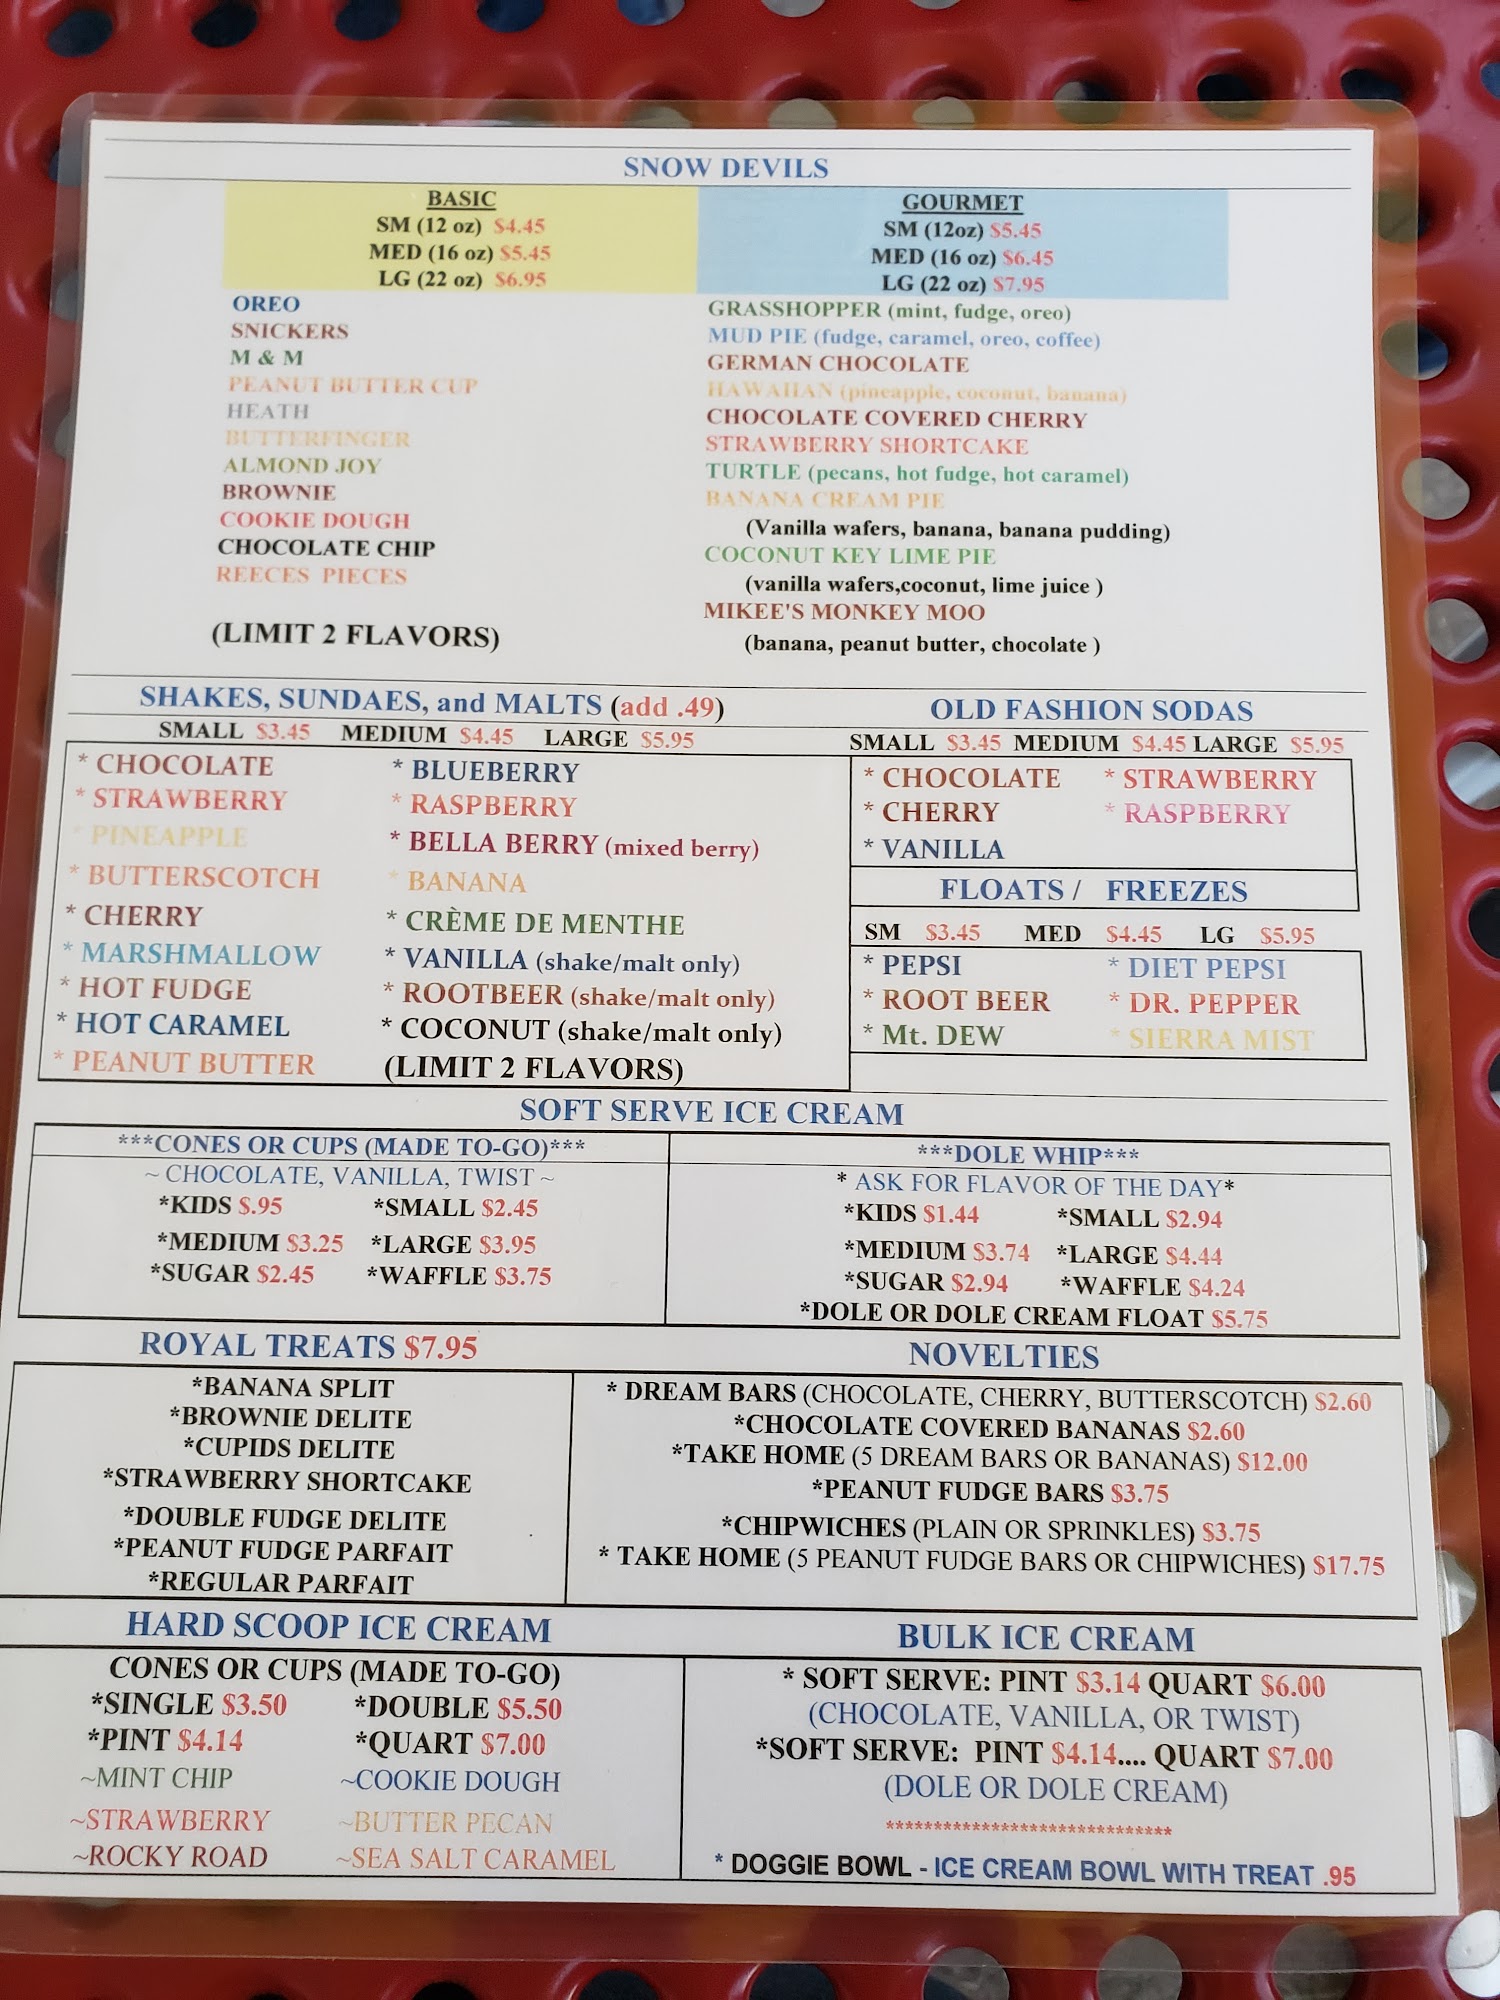 SNOW DEVILS
BASIC
SM (12 oz) $4.45
MED (16 oz) $5.45
LG (22 oz) $6.95
OREO
SNICKERS
M & M
PEANUT BUTTER CUP
HEATH
BUTTERFINGER
ALMOND JOY
BROWNIE
COOKIE DOUGH
CHOCOLATE CHIP
REECES PIECES
(LIMIT 2 FLAVORS)
GOURMET
SM (12oz) $5.45
MED (16 oz) $6.45
LG (22 oz) $7.95
GRASSHOPPER (mint, fudge, oreo)
MUD PIE (fudge, caramel, oreo, coffee)
GERMAN CHOCOLATE
HAWAIIAN (pineapple, coconut, banana)
CHOCOLATE COVERED CHERRY
STRAWBERRY SHORTCAKE
TURTLE (pecans, hot fudge, hot caramel)
BANANA CREAM PIE
(Vanilla wafers, banana, banana pudding)
COCONUT KEY LIME PIE
(vanilla wafers,coconut, lime juice )
MIKEE'S MONKEY MOO
(banana, peanut butter, chocolate )
SHAKES, SUNDAES, and MALTS (add .49)
SMALL $3.45 MEDIUM $4.45 LARGE $5.95
* CHOCOLATE
* STRAWBERRY
* PINEAPPLE
* BUTTERSCOTCH
* CHERRY
* MARSHMALLOW
* HOT FUDGE
* HOT CARAMEL
* PEANUT BUTTER
* BLUEBERRY
* RASPBERRY
* BELLA BERRY (mixed berry)
* BANANA
* CRÈME DE MENTHE
* VANILLA (shake/malt only)
* ROOTBEER (shake/malt only)
* COCONUT (shake/malt only)
(LIMIT 2 FLAVORS)
OLD FASHION SODAS
SMALL $3.45 MEDIUM $4.45 LARGE $5.95
* CHOCOLATE * STRAWBERRY
* CHERRY * RASPBERRY
* VANILLA
FLOATS / FREEZES
SM $3.45 MED $4.45 LG $5.95
* PEPSI * DIET PEPSI
* ROOT BEER * DR. PEPPER
* Mt. DEW * SIERRA MIST
SOFT SERVE ICE CREAM
***CONES OR CUPS (MADE TO-GO)***
~ CHOCOLATE, VANILLA, TWIST ~
*KIDS $.95 *SMALL $2.45
*MEDIUM $3.25 *LARGE $3.95
*SUGAR $2.45 *WAFFLE $3.75
***DOLE WHIP***
* ASK FOR FLAVOR OF THE DAY*
*KIDS $1.44 *SMALL $2.94
*MEDIUM $3.74 *LARGE $4.44
*SUGAR $2.94 *WAFFLE $4.24
*DOLE OR DOLE CREAM FLOAT $5.75
ROYAL TREATS $7.95
*BANANA SPLIT
*BROWNIE DELITE
*CUPIDS DELITE
*STRAWBERRY SHORTCAKE
*DOUBLE FUDGE DELITE
*PEANUT FUDGE PARFAIT
*REGULAR PARFAIT
NOVELTIES
* DREAM BARS (CHOCOLATE, CHERRY, BUTTERSCOTCH) $2.60
*CHOCOLATE COVERED BANANAS $2.60
*TAKE HOME (5 DREAM BARS OR BANANAS) $12.00
*PEANUT FUDGE BARS $3.75
*CHIPWICHES (PLAIN OR SPRINKLES) $3.75
* TAKE HOME (5 PEANUT FUDGE BARS OR CHIPWICHES) $17.75
HARD SCOOP ICE CREAM
CONES OR CUPS (MADE TO-GO)
*SINGLE $3.50 *DOUBLE $5.50
*PINT $4.14 *QUART $7.00
~MINT CHIP ~COOKIE DOUGH
~STRAWBERRY ~BUTTER PECAN
~ROCKY ROAD ~SEA SALT CARAMEL
BULK ICE CREAM
* SOFT SERVE: PINT $3.14 QUART $6.00
(CHOCOLATE, VANILLA, OR TWIST)
*SOFT SERVE: PINT $4.14.... QUART $7.00
(DOLE OR DOLE CREAM)
******************************
* DOGGIE BOWL - ICE CREAM BOWL WITH TREAT .95